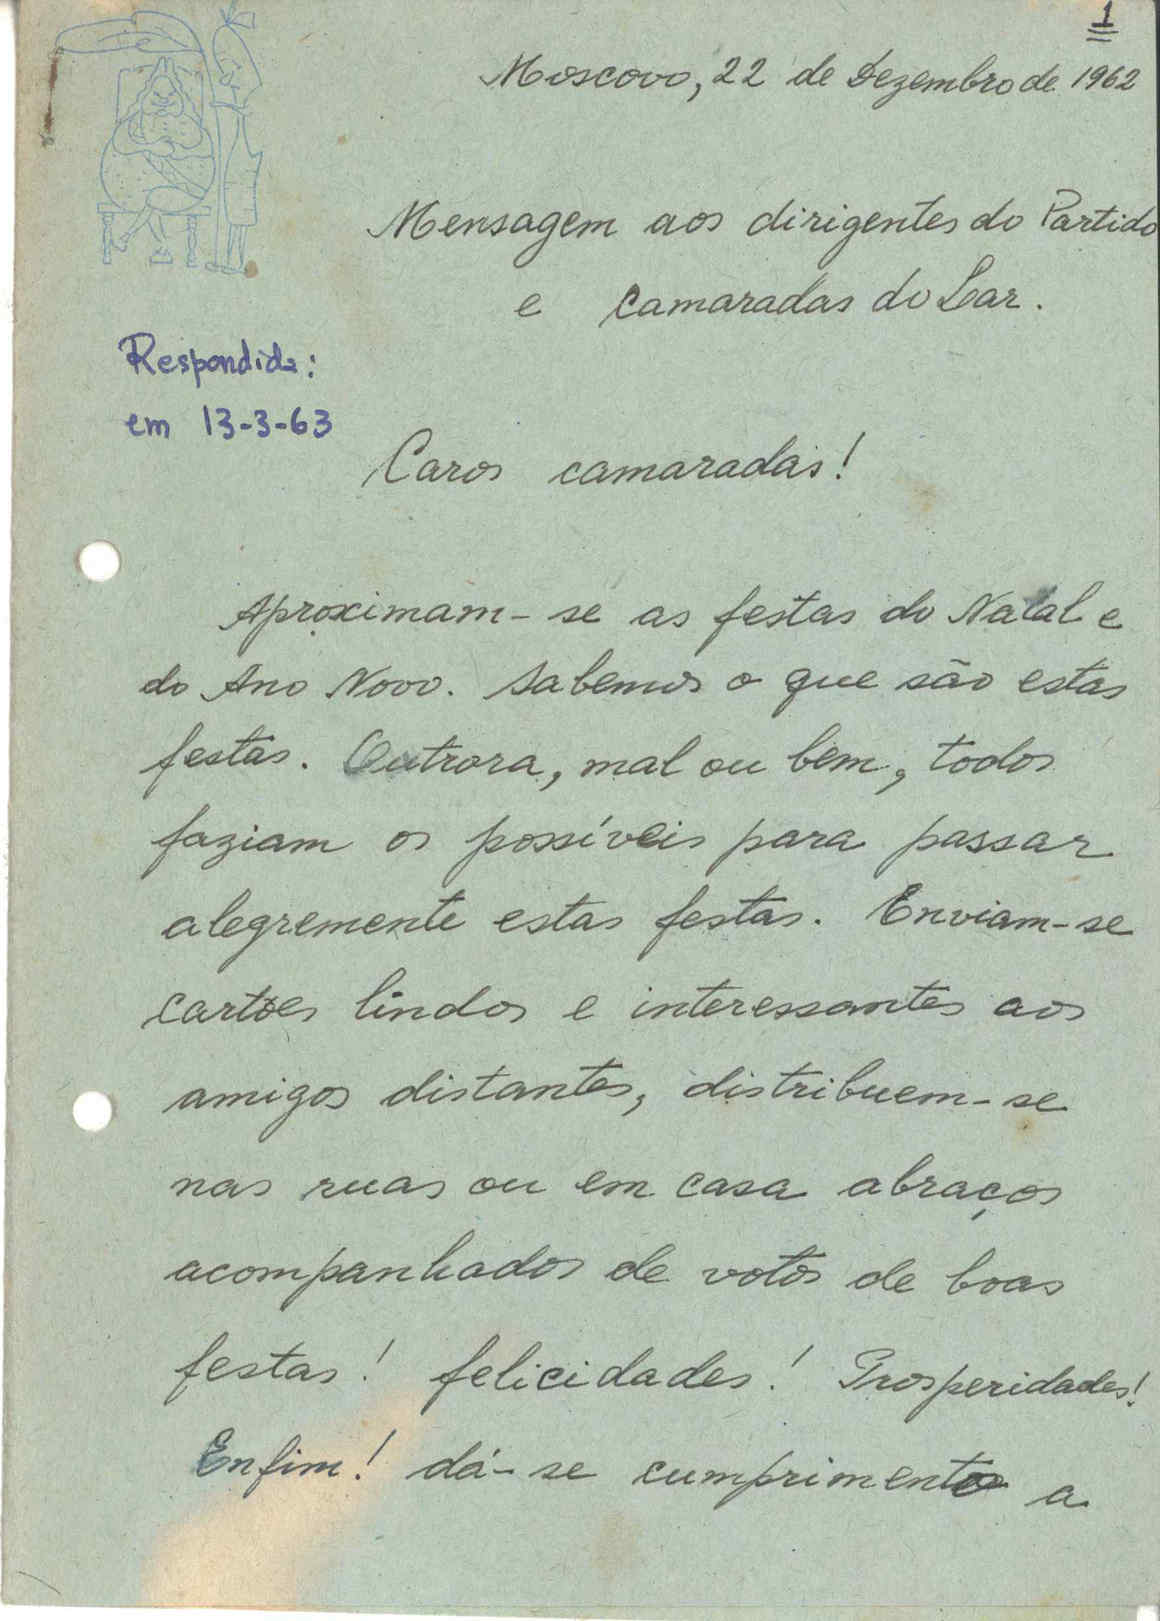 1
Moscovo, 22 de Dezembro de 1962
Mensagem aos dirigentes do Partido
e camaradas do Lar.
Respondida:
em 13-3-63
Caros camaradas!
Aproximam-se as festas do Natal e
do Ano Novo. Sabemos o que são estas
festas. Outrora, mal ou bem, todos
faziam os possíveis para passar
alegremente estas festas. Enviam-se
cartões lindos e interessantes aos
amigos distantes, distribuem-se
nas ruas ou em casa abraços
acompanhados de votos de boas
festas! felicidades! Prosperidades!
Enfim! dá-se cumprimento a